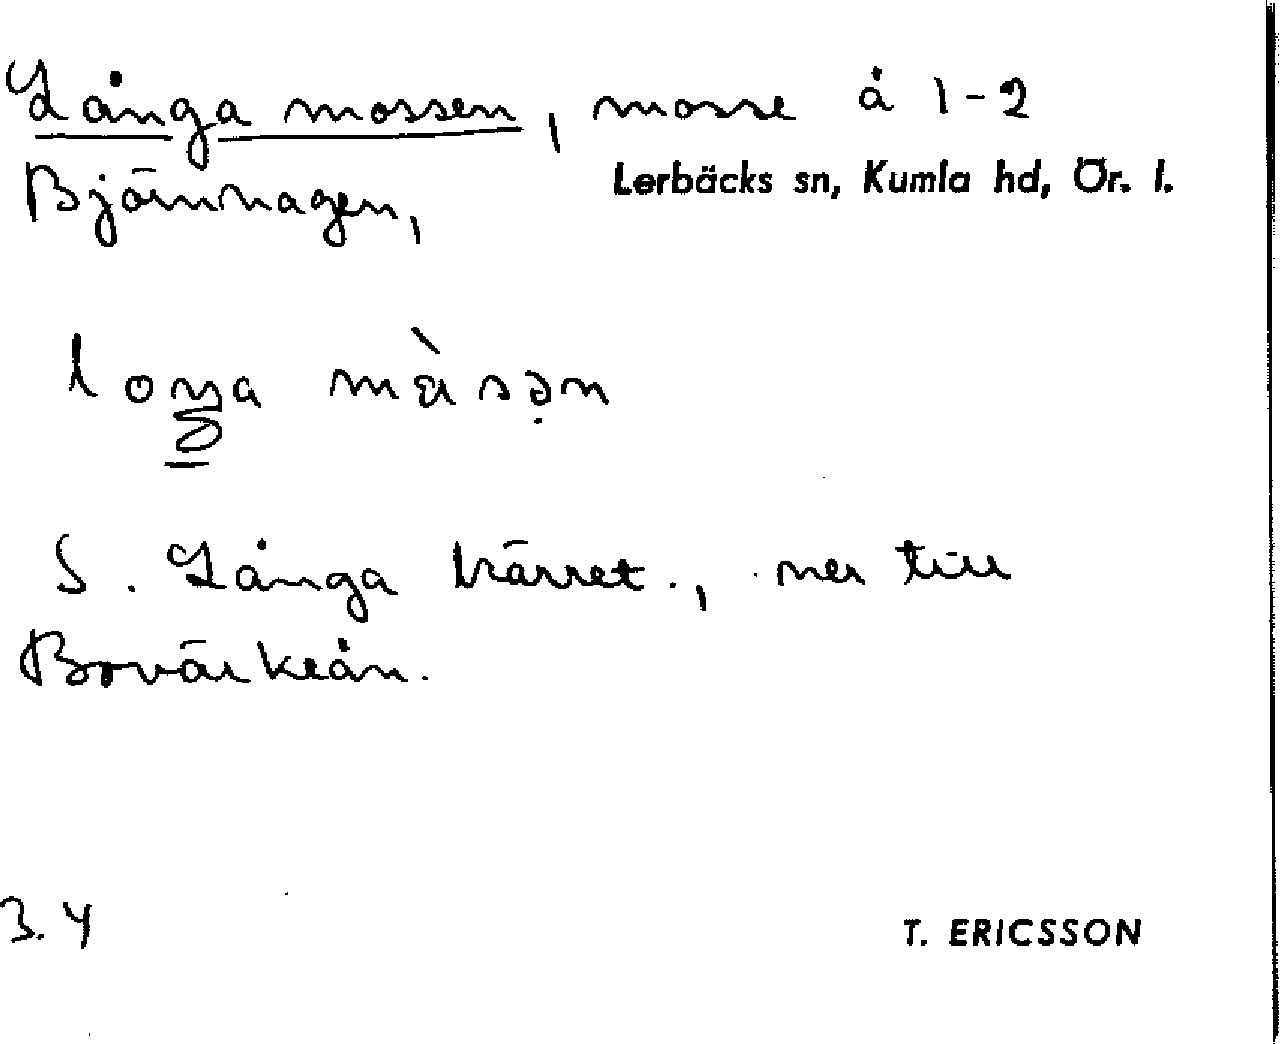 Långa mossen, mosse å 1-2
Lerbäcks sn, Kumla hd, Ör. l.
Björnhagen,
S. Långa kärret., ner till
3.4
T. ERICSSON